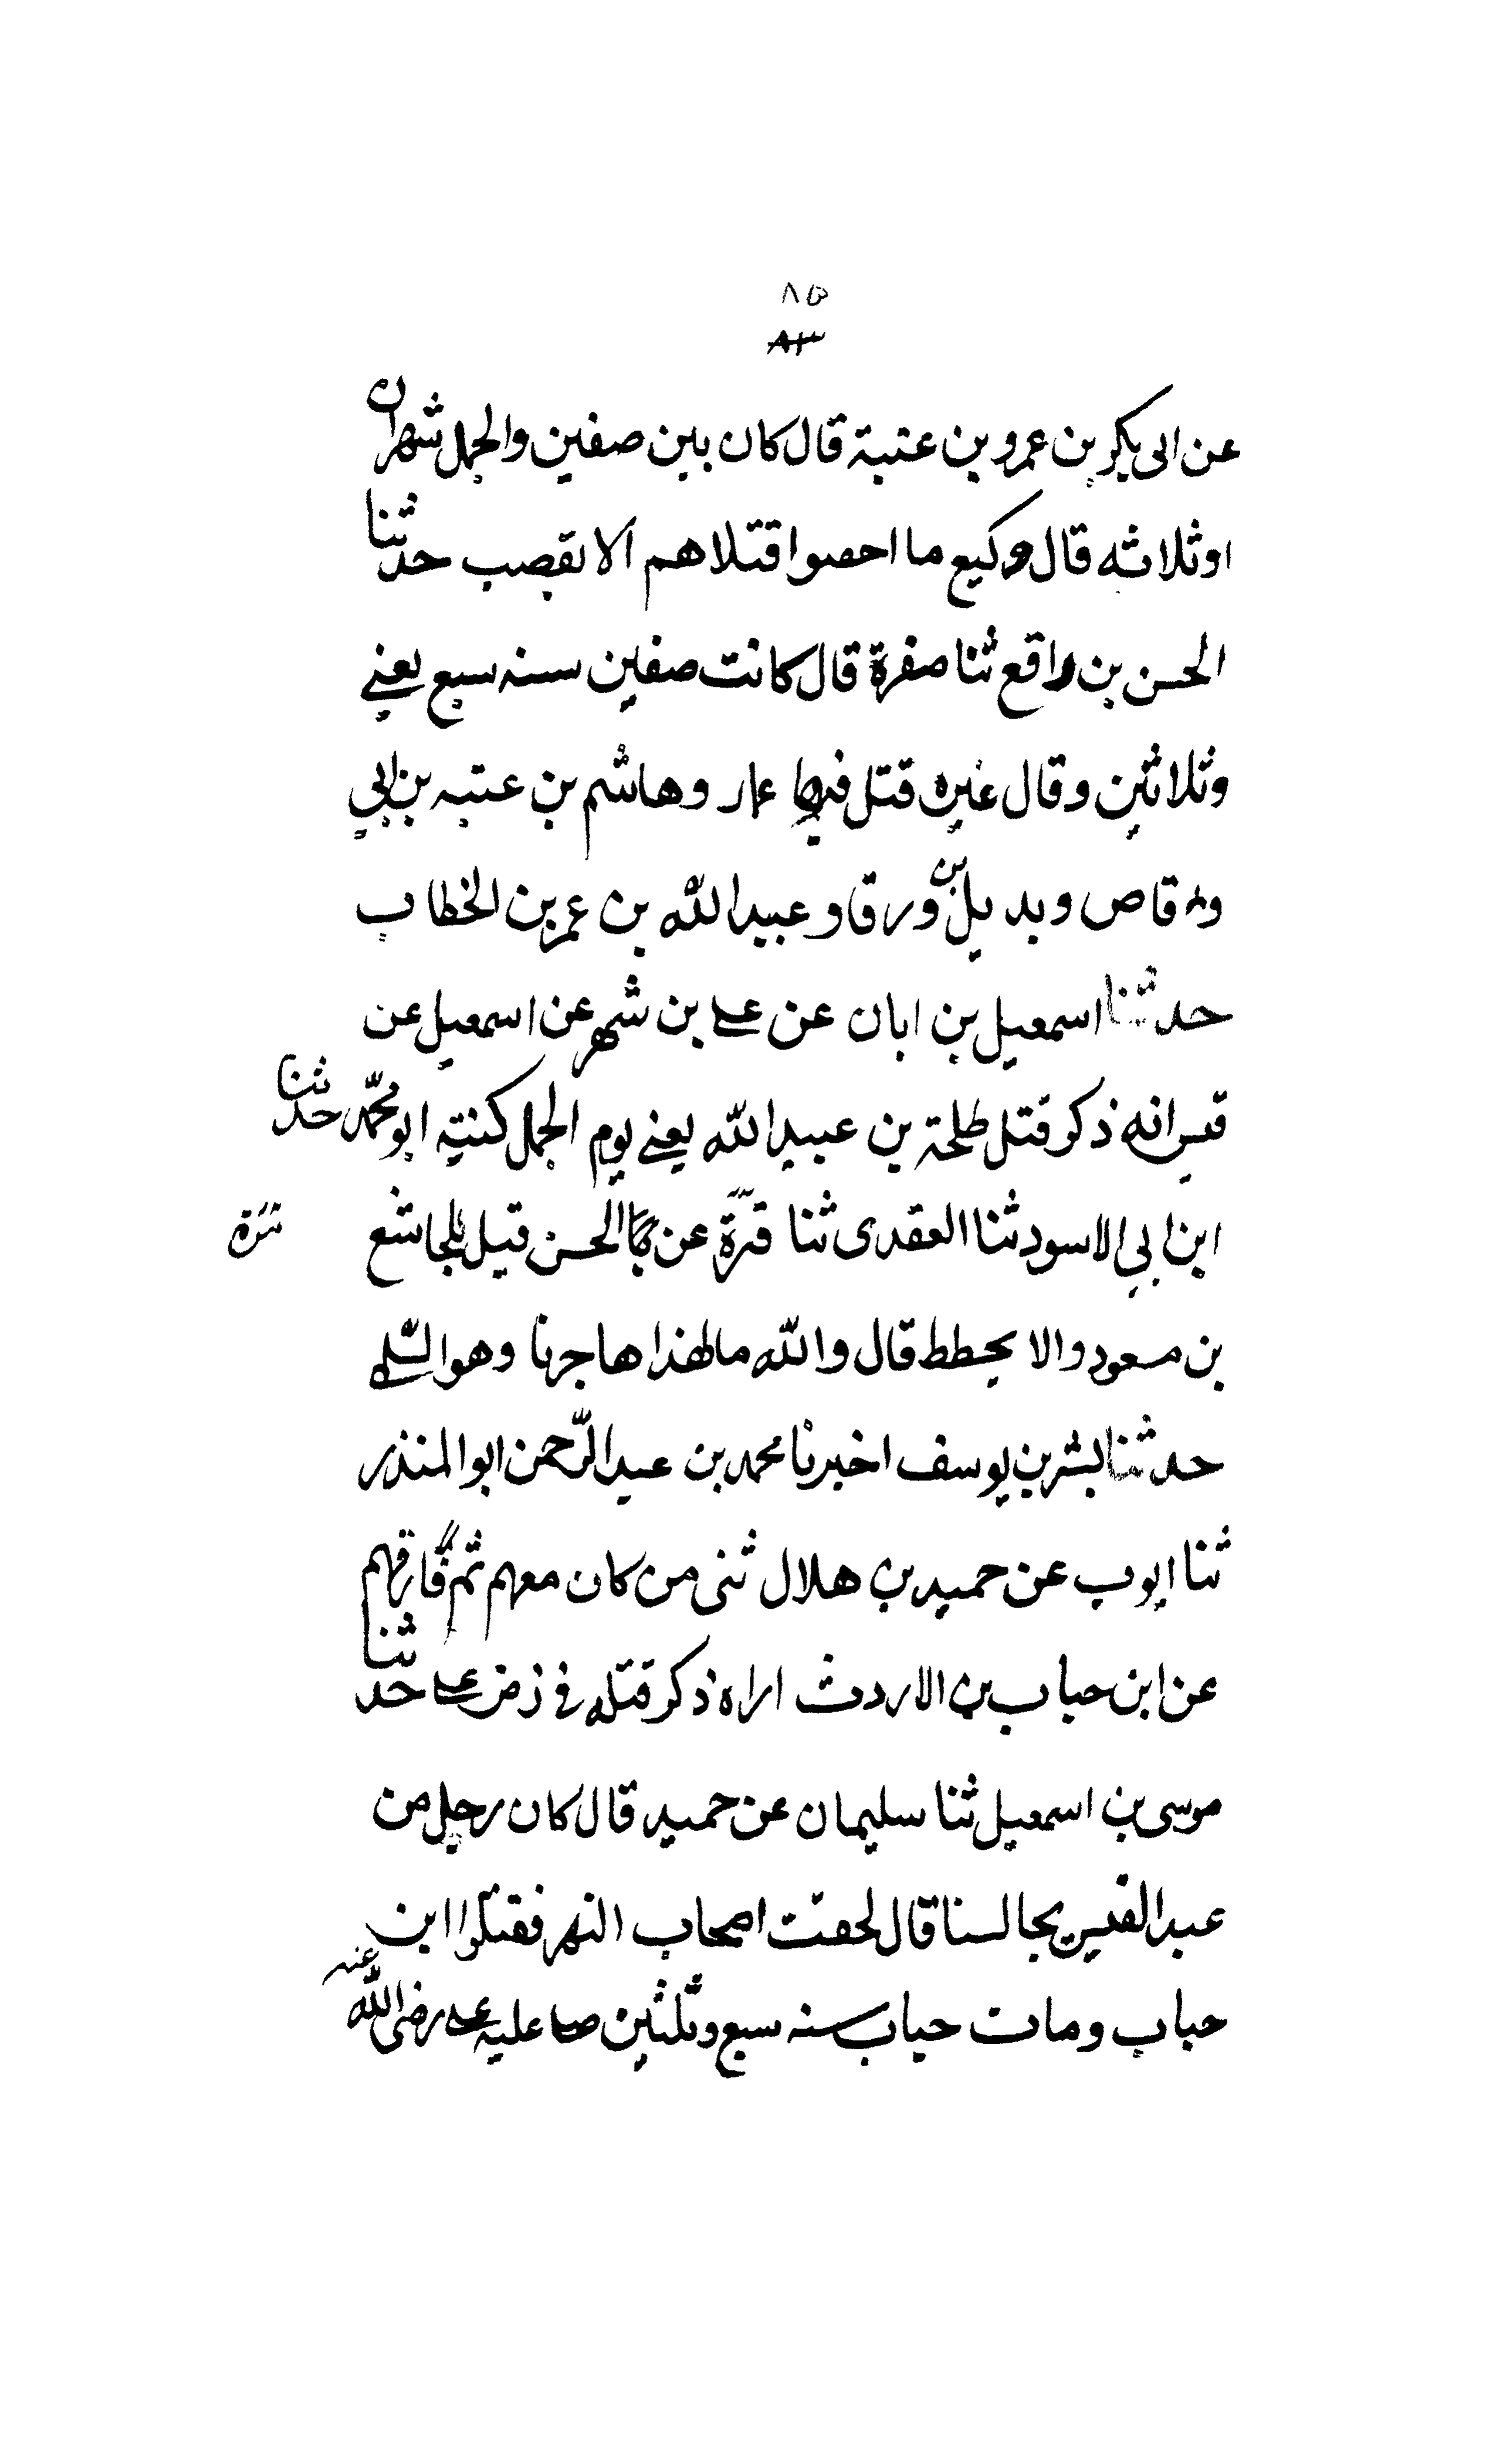 ٨٥
٨٣
عن ابى بكر بن عمرو بن عتبة قال كان بين صفين والجمل شهران
او ثلاثه قال وكيع ما احصوا قتلاهم الا بقصب حدثنا
الحسن بن واقع ثنا صفرة قال كانت صفين سنه سبع يعني
وثلاثين وقال غيره قتل فيها عمار وهاشم بن عتبه بن ابي
وقاص وبديل بن ورقا وعبيد الله بن عمر بن الخطاب
حدثنا اسمعيل بن ابان عن على بن شهر عن اسمعيل عن
قيس انه ذكر قتل طلحة بن عبيد الله يعني يوم الجمل كنيته ابو محمّد حدثنا
ابن ابي الاسود ثنا العقدى ثنا قرّة عن الحسن قيل لمجاشع
قرة
بن مسعود والا يحطط قال والله ما لهذا هاجرنا وهو السّلمى
حدثنا بشر بن يوسف اخبرنا محمد بن عبد الرّحمن ابو المنذر
ثنا ايوب عن حميد بن هلال ثنى من كان معهم ثم فارقهم
عن ابن حباب بن الاردث اراه ذكر قتله فى زمن على حدثنا
موسى بن اسمعيل ثنا سليمان عن حميد قال كان رجل من
عبد القيس يجالسنا قال لحقت اصحاب النهر فقتلوا ابن
حباب ومات حباب سنه سبع وثلثين صلى عليه على رضى الله عنه